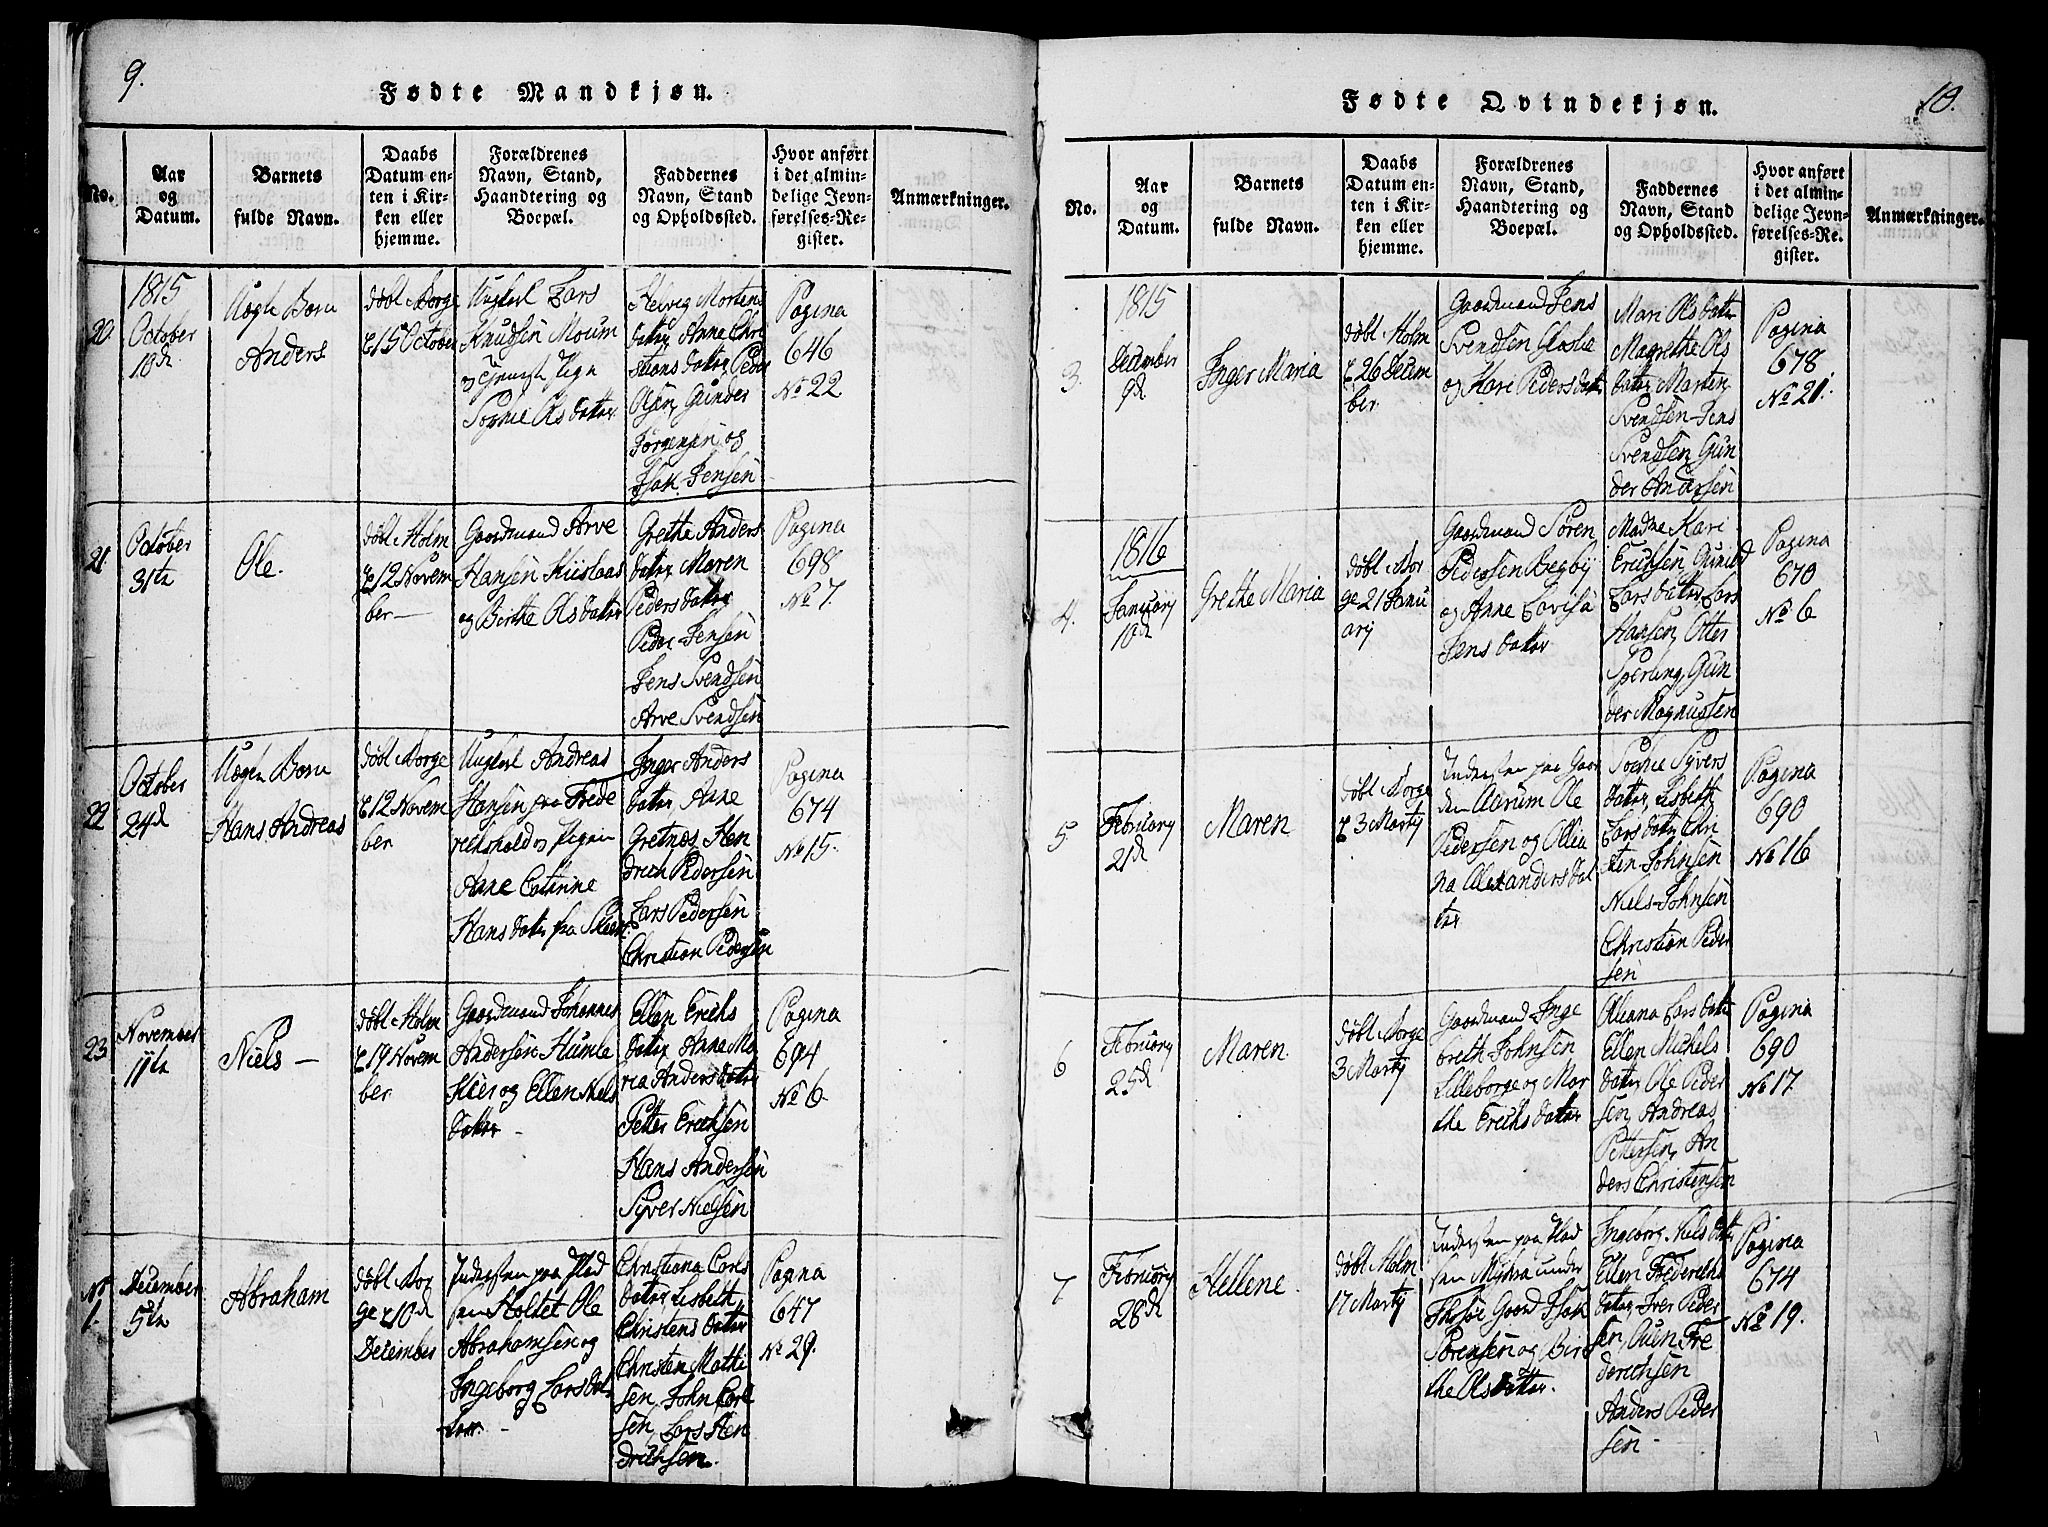 9.
Fødte Mandkjøn.
No.
Aar
og
Datum.
Barnets
fulde Navn.
Daabs
Datum en-
ten i Kir-
ken eller
hjemme.
Forældrenes
Navn, Stand,
Haandtering og
Boepæl.
Faddernes
Navn, Stand
og Opholdssted.
Hvor anført
i det almin-
delige Jevn-
førelses-Re-
gister.
Anmærkninger.
20.
1815
October
10d
Uægte Barn
Anders
døbt Borge
d 15 October
Ungkarl Lars
Knudsen Moum
og Pige
Sophie Olsdatter
Helvig Mortens
datter, Anne Chri
stians datter, Peder
Olsen, Gunder
Jørgensen og
Isak Jensen
Pagina
646
No 22
21.
October
31te
Ole.
døbt Holm
d 12 Novem
ber —
Gaardmand Arve
Hansen Kiislaas
og Berthe Olsdatter
Grethe Anders
datter, Maren
Pedersdatter
Peder Jensen
Jens Svendsen
Arve Svendsen
Pagina
698
No 7.
22
October
24d
Uægte Barn
Hans Andreas
døbt Borge
d 12 Novem
ber
Ungkarl Andreas
Hansen fra Frede
rikshald og Pigen
Anne Catarine
Hansdatter fra
Inger Anders
datter, Anne
Gretnæs, Hen
drich Pedersen
Lars Pedersen
Christian Pedersen
Pagina
674
No 15.
23
November
11te
Niels —
døbt Holm
d 19 Novem
ber
Gaardmand Johannes
Andersen Humle
kier og Ellen Niels
datter —
Ellen Erichs
datter, Anne Ma
ria Andersdatter
Petter Erichsen
Hans Andersen
Syver Nielsen
Pagina
694
No 6
No
1.
December
5te
Abraham
døbt Bor
ge d 10d
December
Inderster paa Plad
sen Holtet Ole
Abrahamsen og
Ingeborg Larsdat
ter. —
Christiana Carls
datter, Lisbeth
Christens datter
Christen Mathi
sen, John Carl
sen, Lars Hen
drichsen.
Pagina
647
No 29.
10.
Fødte Qvindekjøn.
No.
Aar
og
Datum.
Barnets
fulde Navn.
Daabs
Datum en-
ten i Kir-
ken eller
hjemme.
Forældrenes
Navn, Stand,
Haandtering og
Boepæl.
Faddernes
Navn, Stand
og Opholdssted.
Hvor anført
i det almin-
delige Jevn-
førelses-Re-
gister.
Anmærkninger.
3.
1815
December
9d
Inger Maria
døbt Holm
d 26 Decem
ber
Gaardmand Jens
Svendsen
og Kari Pedersdatter
Mari Olsdatter
Magrethe Ols
datter, Morten
Svendsen, Jens
Svendsen, Gun
der Andersen
Pagina
678
No 21.
4.
1816
January
10d
Grethe Maria
døbt Bor
ge 21 Janu
ary
Gaardmand Søren
Pedersen Begby
og Anne Lovisa
Jens datter
Madme Kari
Erichsen, Gunild
Lars datter, Lars
Hansen, Otter
Sperling, Gun
der Magnussen
Pagina
670
No 6
5.
February
21d
Maren
døbt Borge
d 3 Marty
Inderster paa Gaar
den Aarum Ole
Pedersen og Ollia
na Alexanders dat
ter
Sophie Syvers
datter, Lisbeth
Lars datter, Chri
sten Johnsen
Niels Johnsen
Christian Peder
sen
Pagina
690
No 16
6
February
25d
Maren.
døbt Borge
3 Marty
Gaardmand Inge
breth Johnsen
Lilleborge og Mar
the Erichs datter
Oleana Lars datter
Ellen Michels
datter, Ole Peder
sen, Andreas
Pettersen, An
ders Christensen
Pagina
690
No 17.
7
February
28d
Hellene.
døbt Holm
17 Marty
Inderster paa Plad
sen Myhra under
Thisøe Gaard Isak
Sørensen og Bir
the Olsdatter.
Ingeborg Nielsdatter
Ellen Frederichs
datter, Iver Peder
sen, Ouen Fre
derichsen
Anders Peder
sen —
Pagina
674
No 19.